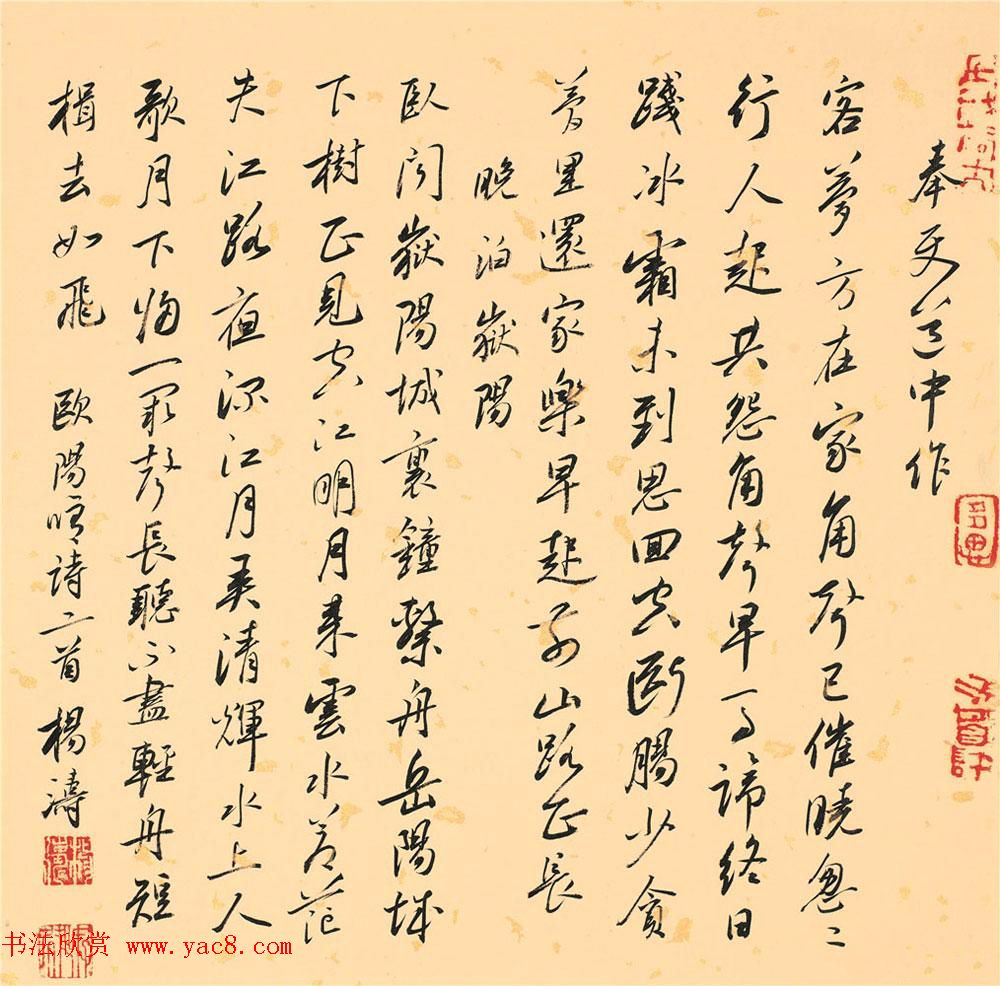 奉使道中作
客夢方在家角聲已催曉忽々
行人起共怨角聲早馬蹄終日
踐冰霜未到思回空斷腸少貪
夢里還家樂早起前山路正長
晚泊嶽陽
臥聞嶽陽城裏鐘繫舟岳陽城
下樹正見空江明月來雲水蒼茫
失江路夜深江月弄清輝水上人
歌月下歸一闋聲長聽不盡輕舟短
楫去如飛 歐陽脩詩二首 楊濤
书法欣赏 www.yac8.com